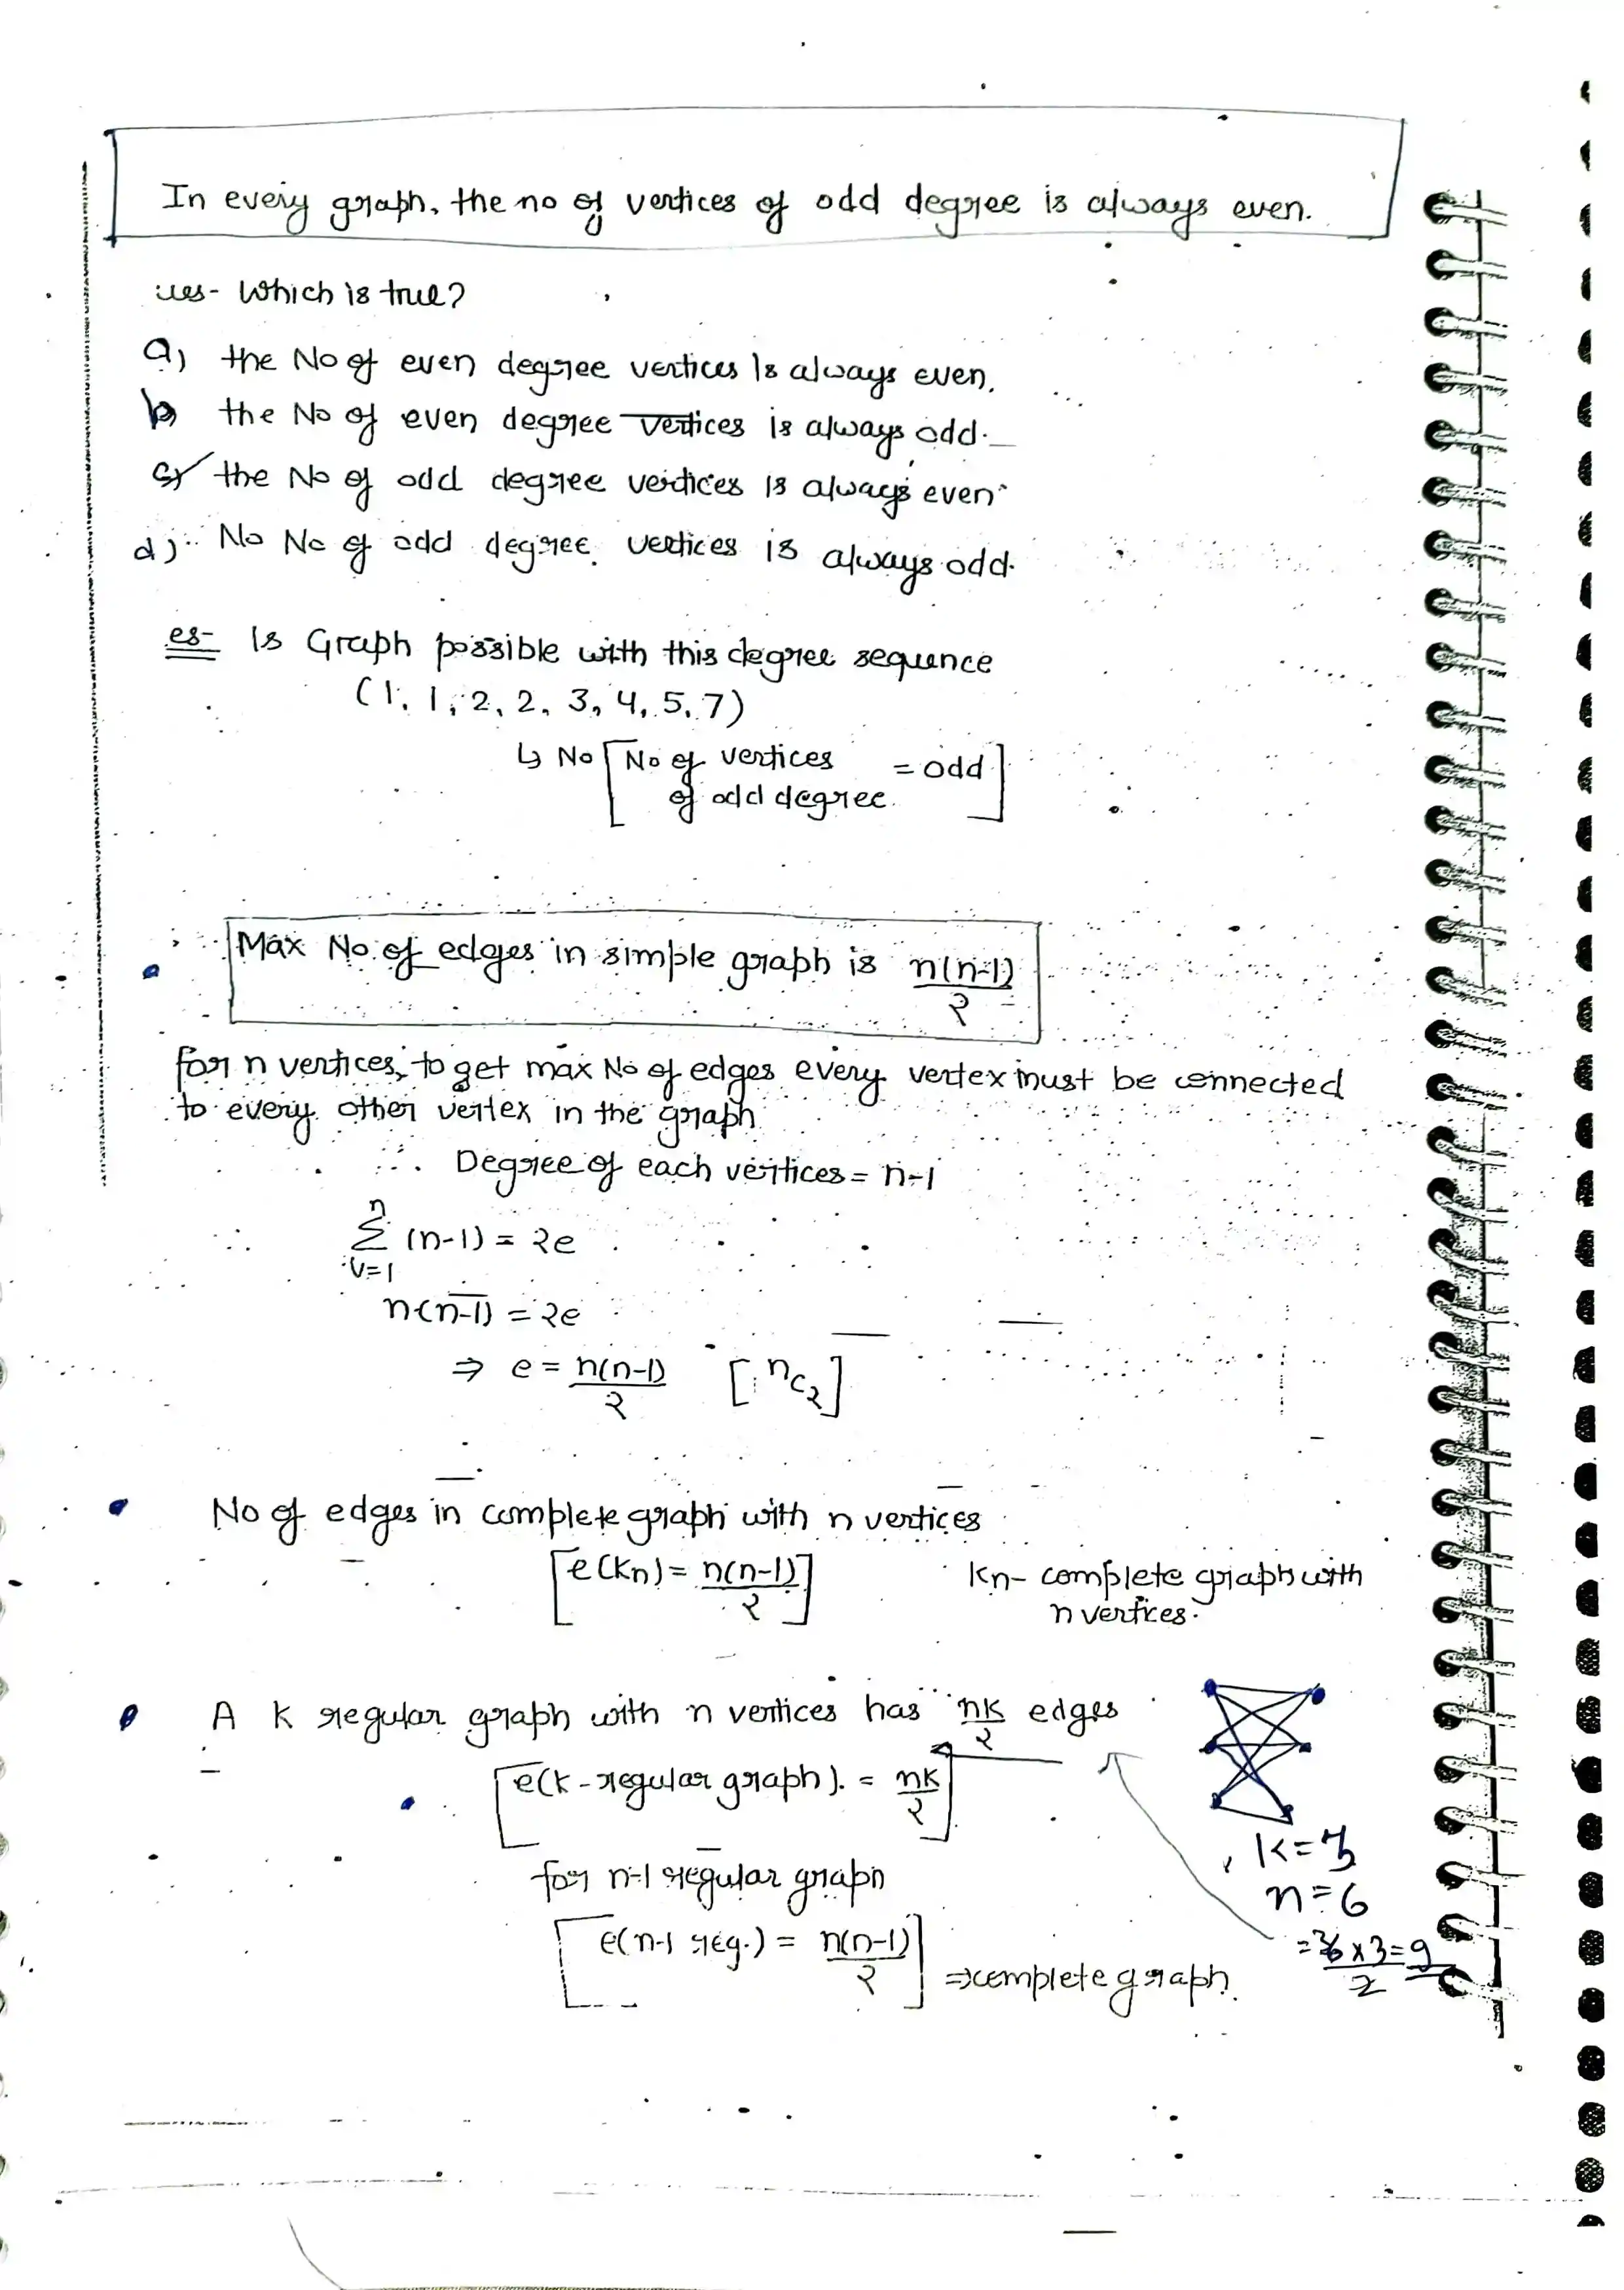 In every graph, the no of vertices of odd degree is always even.
ues- Which is true?
a) the No of even degree vertices is always even.
b) the No of even degree vertices is always odd.
c) the No of odd degree vertices is always even
d) No No of odd degree vertices is always odd.
es- Is Graph possible with this degree sequence
(1, 1, 2, 2, 3, 4, 5, 7)
↳ No [No of vertices of odd degree = odd]
Max No of edges in simple graph is n(n-1)/2
for n vertices, to get max No of edges every vertex must be connected
to every other vertex in the graph
∴ Degree of each vertices = n-1
∴ n∑v=1 (n-1) = 2e
n(n-1) = 2e
⇒ e = n(n-1)/2 [nC2]
No of edges in complete graph with n vertices
[e(Kn) = n(n-1)/2]
Kn- complete graph with
n vertices.
A K regular graph with n vertices has nK/2 edges
[e(K-regular graph). = nK/2]
K=3
n=6
for n-1 regular graph
[e(n-1 reg.) = n(n-1)/2] ⇒ complete graph.
= 6 x 3/2 = 9